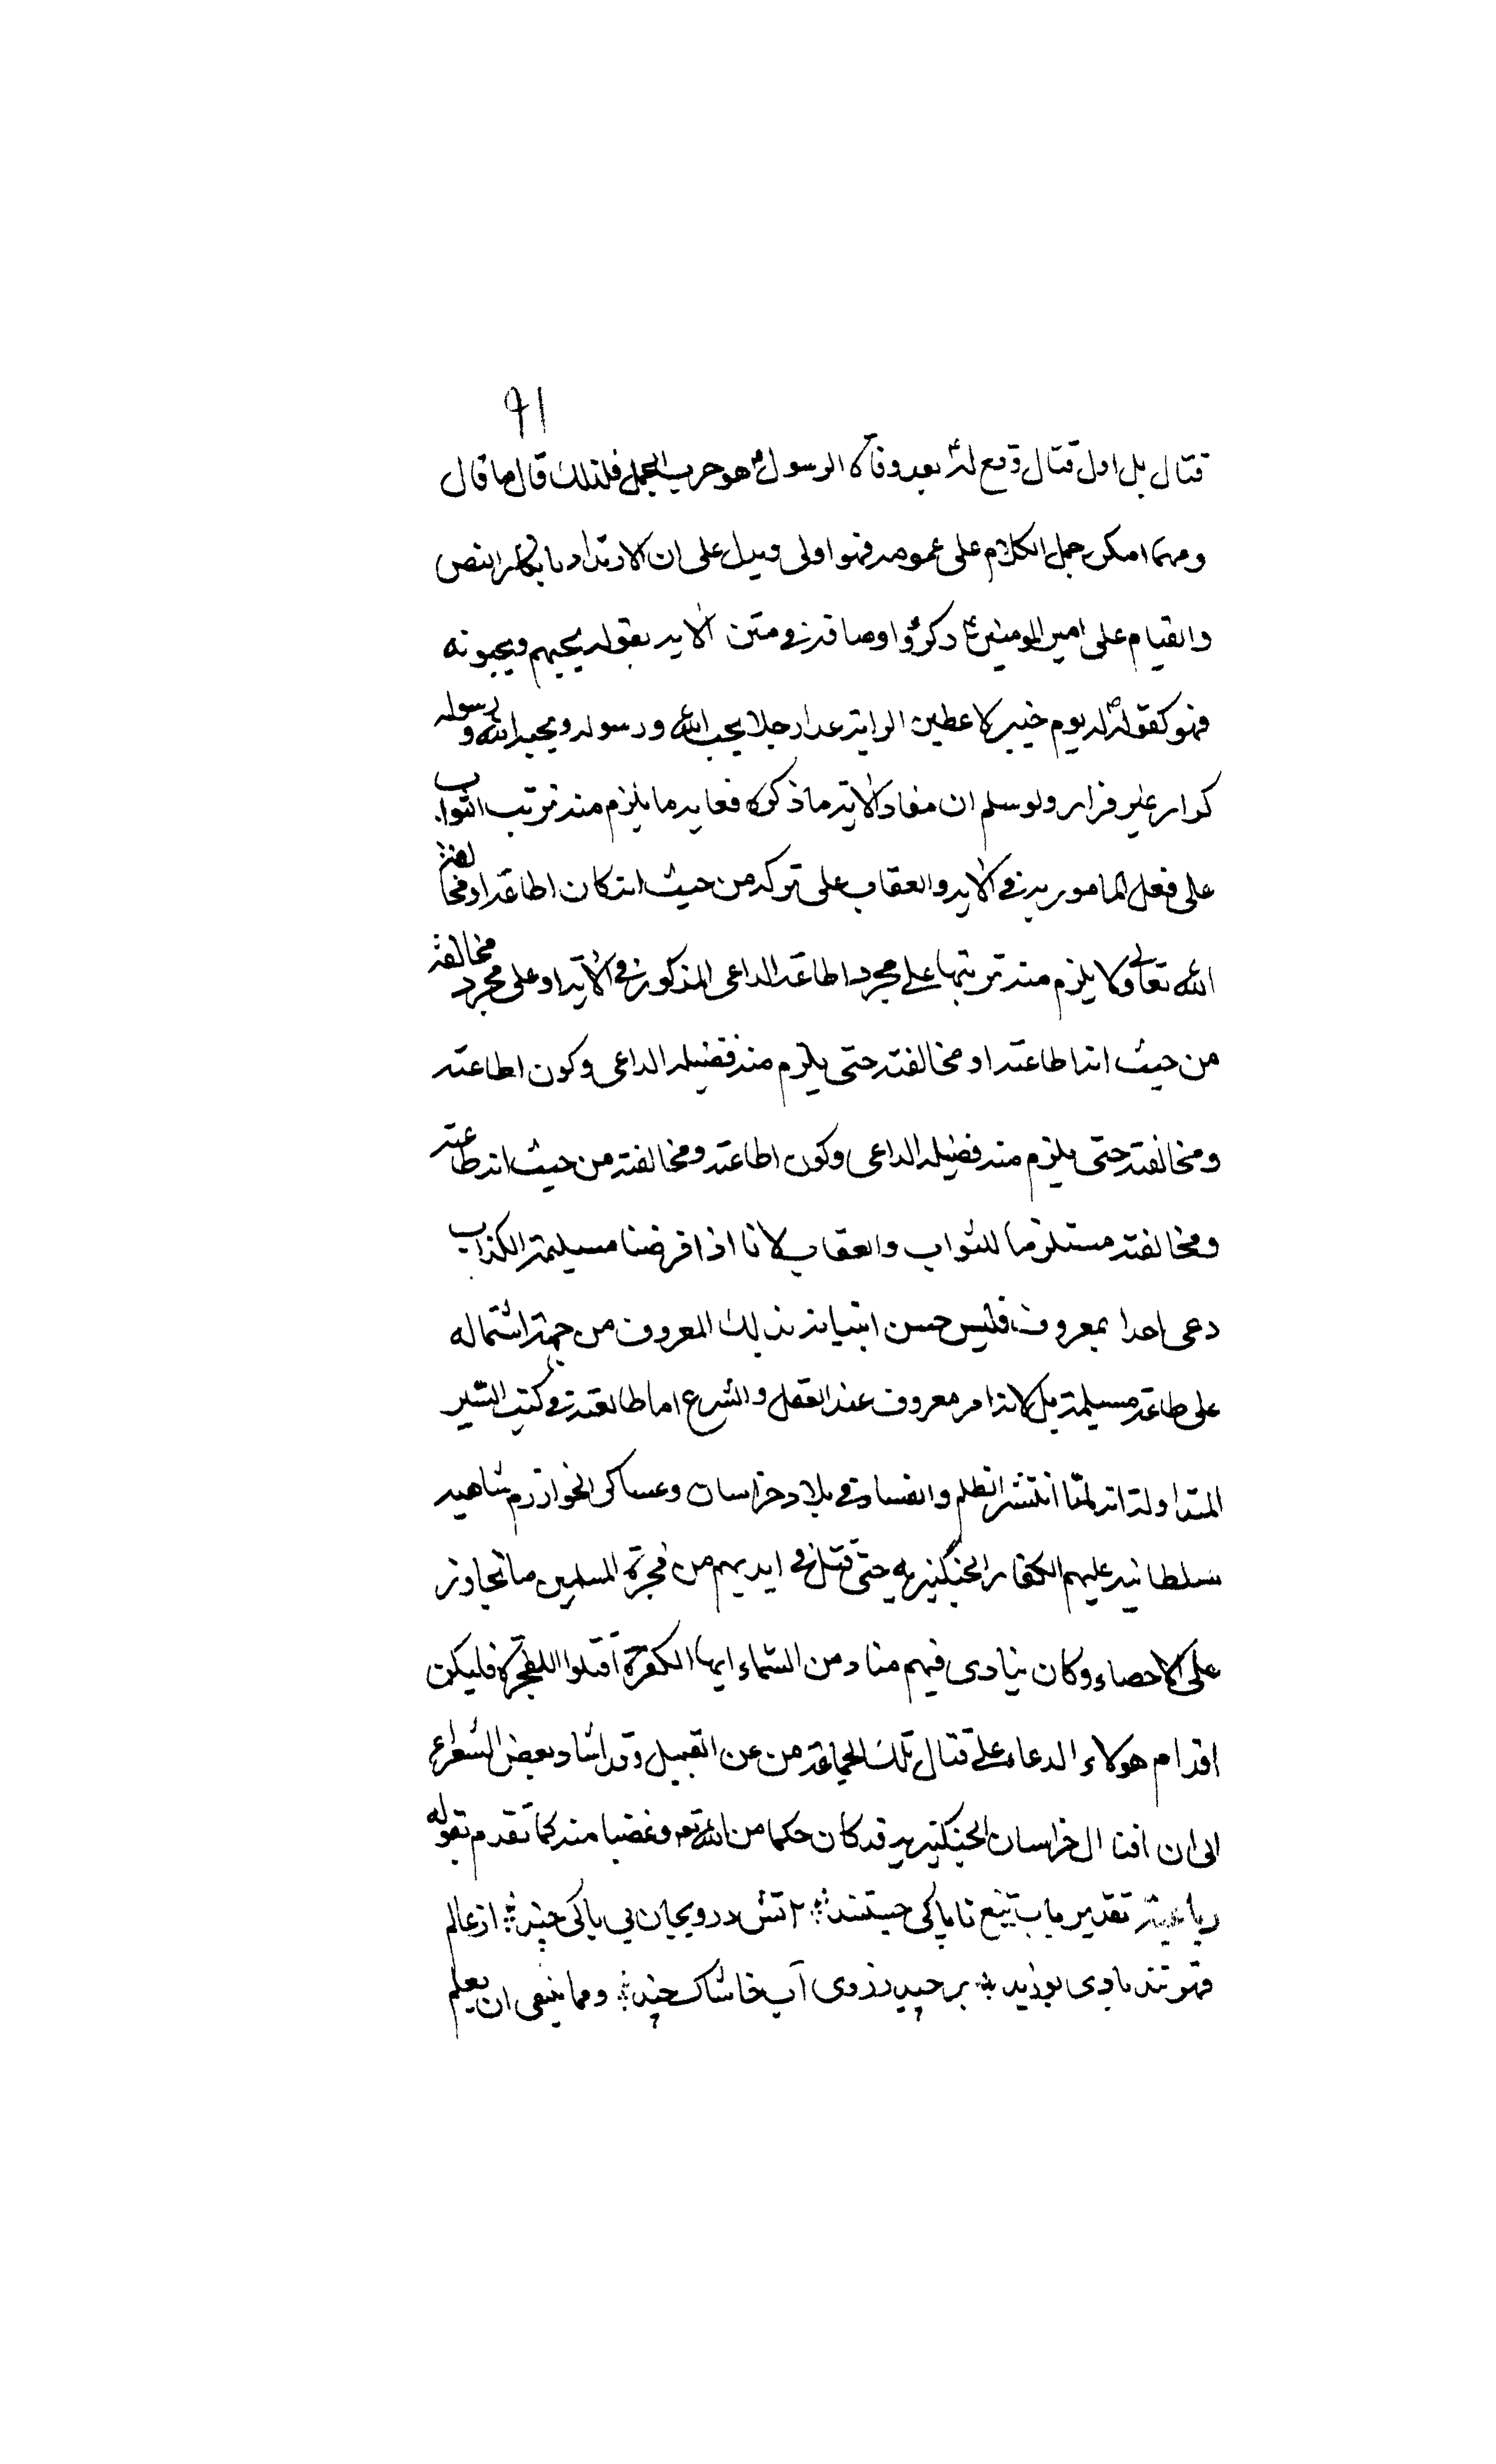 ٩١
قتال بل اول قتال وقع له ع بعد وفاة الرسول ص هو حرب الجمل فلذلك قال ما قال
ومهما امكن حمل الكلام على عمومه فهو اولى ويدل على ان الارتداد بانكار النص
والقيام على امير المومنين ع ذكر اوصافه في متن الاية بقوله يحبهم ويحبونه
فهو كقوله ص له يوم خيبر لاعطين الراية غدا رجلا يحب الله ورسوله ويحبه الله ورسوله
كرار غير فرار ولو سلم ان مفاد الاية ما ذكره فغايه ما يلزم منه ترتب الثواب
على فعل المامور به في الاية والعقاب على تركه من حيث انه كان اطاعة او مخالفة
الله تعالى ولا يلزم منه ترتبها على مجرد اطاعة الداعى المذكور في الاية او على مجرد مخالفته
من حيث انه اطاعته او مخالفته حتى يلزم منه فضيلة الداعى وكون اطاعته
ومخالفته حتى يلزم منه فضيلة الداعى وكون اطاعته ومخالفته من حيث انه طاعته
ومخالفته مستلزما للثواب والعقاب لانا اذا فرضنا مسيلمة الكذاب
دعى احدا بمعروف فليس حسن اتيانه بذلك المعروف من جهة اشتماله
على طاعة مسيلمة بل لانه امر معروف عند العقل والشرع اما طالعته في كتب السير
المتداولة انه لما انتشر الظلم والفساد في بلاد خراسان وعساكر الخوارزم شاهيه
سلطانيه عليهم الكفار الجنكيزيه حتى قتل في ايديهم من فجرة المسلمين ما تجاوز
على الاحصاء وكان ينادى فيهم مناد من السماء ايها الكفرة اقتلوا الفجرة فليكن
اقدام هولاء الدعاء على قتال تلك الجماعة من عن القبيل وقد اشاد بعض الشعراء
الى ان افنا ال خراسان الجنكيزيه قد كان حكما من الله تعه وغضبا منه كما تقدم بقوله
رباعيه تقدير باب تيغ ناپاكى چستند آتش در و بجان بى باكى چند از عالم
قهر تند بادى بوزيد بر چيد ز روى آب خاشاك چند ومما ينبغى ان يعلم